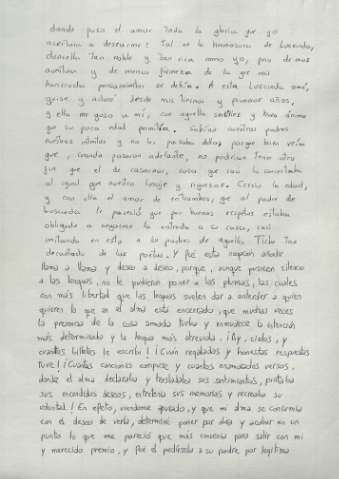 donde puso el amor toda la gloria que yo
acertara a desearme: Tal es la hermosura de Luscinda,
doncella tan noble y tan rica como yo, pero de más
ventura y de menos firmeza de la que mis
honrados pensamientos se debía. A esta Luscinda amé,
quise y adoré desde mis tiernos y primeros años,
y ella me quiso a mí, con aquella sencillez y buen ánimo
que su poca edad permitía. Sabían nuestros padres
nuestros intentos y no les pesaba dello, porque bien veían
que, cuando pasaran adelante, no podrían tener otro
fin que el de casarnos, cosa que casi la concertaba
la igual que nuestro linaje y riquezas. Creció la edad,
y con ella el amor de entrambos, que al padre de
Luscinda le pareció que por buenos respetos estaba
obligado a negarme la entrada a su casa, casi
imitando en esto a los padres de aquella Tisbe tan
decantada de los poetas. Y fué esta negación añadir
llama a llama y deseo a deseo, porque, aunque pusieron silencio
a las lenguas, no le pudieron poner a las plumas, las cuales
con más libertad que las lenguas suelen dar a entender a quien
quieren lo que en el alma está encerrado, que muchas veces
la presencia de la cosa amada turba y enmudece la intención
más determinada y la lengua más atrevida. ¡Ay, cielos, y
cuántos billetes le escribí! ¡Cuán regaladas y honestas respuestas
tuve! ¡Cuántas canciones compuse y cuántos enamorados versos,
donde el alma declaraba y trasladaba sus sentimientos, pintaba
sus encendidos deseos, entretenía sus memorias y recreaba su
voluntad! En efeto, viéndome apurado, y que mi alma se consumía
con el deseo de verla, determiné poner por obra y acabar en un
punto lo que me pareció que más convenía para salir con mi
y merecido premio, y fué el pedírsela a su padre por legítima